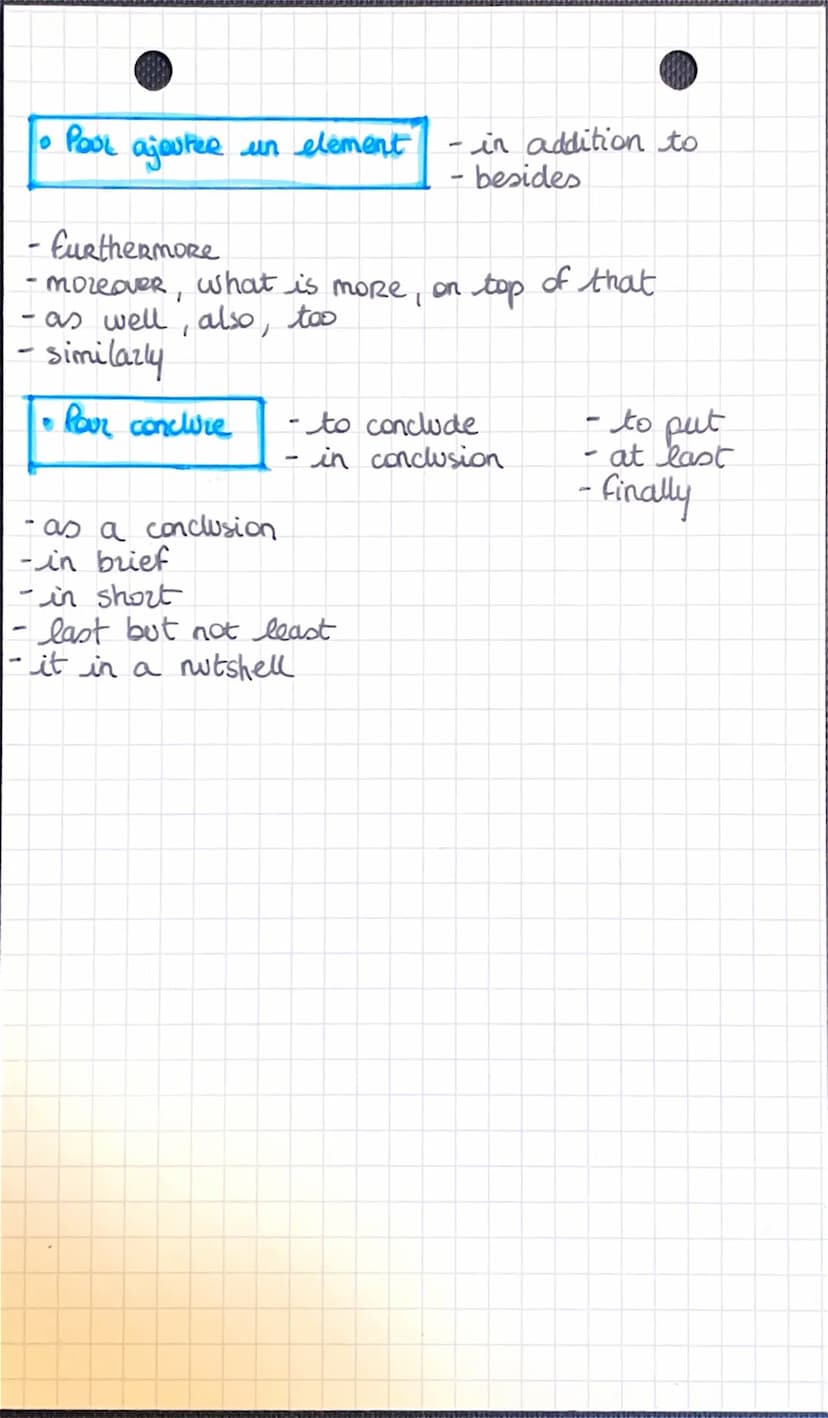 • Pour ajouter un element
- in addition to
- besides
- furthermore
- moreover, what is more, on top of that
- as well, also, too
- similarly
• Pour conclure
- to conclude
- in conclusion
- to put
- at last
- finally
- as a conclusion
- in brief
- in short
- last but not least
- it in a nutshell